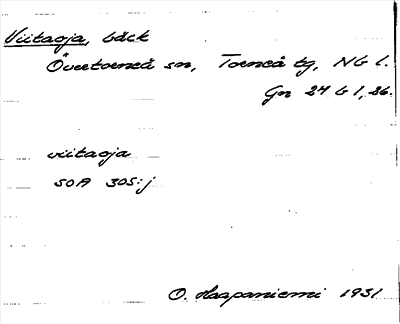 Viitaoja, bäck
Övertorneå sn, Torneå tg, NB l.
Gn 24 b 1, 26.
viitaoja
SOA 305:j
O. Haapaniemi 1931